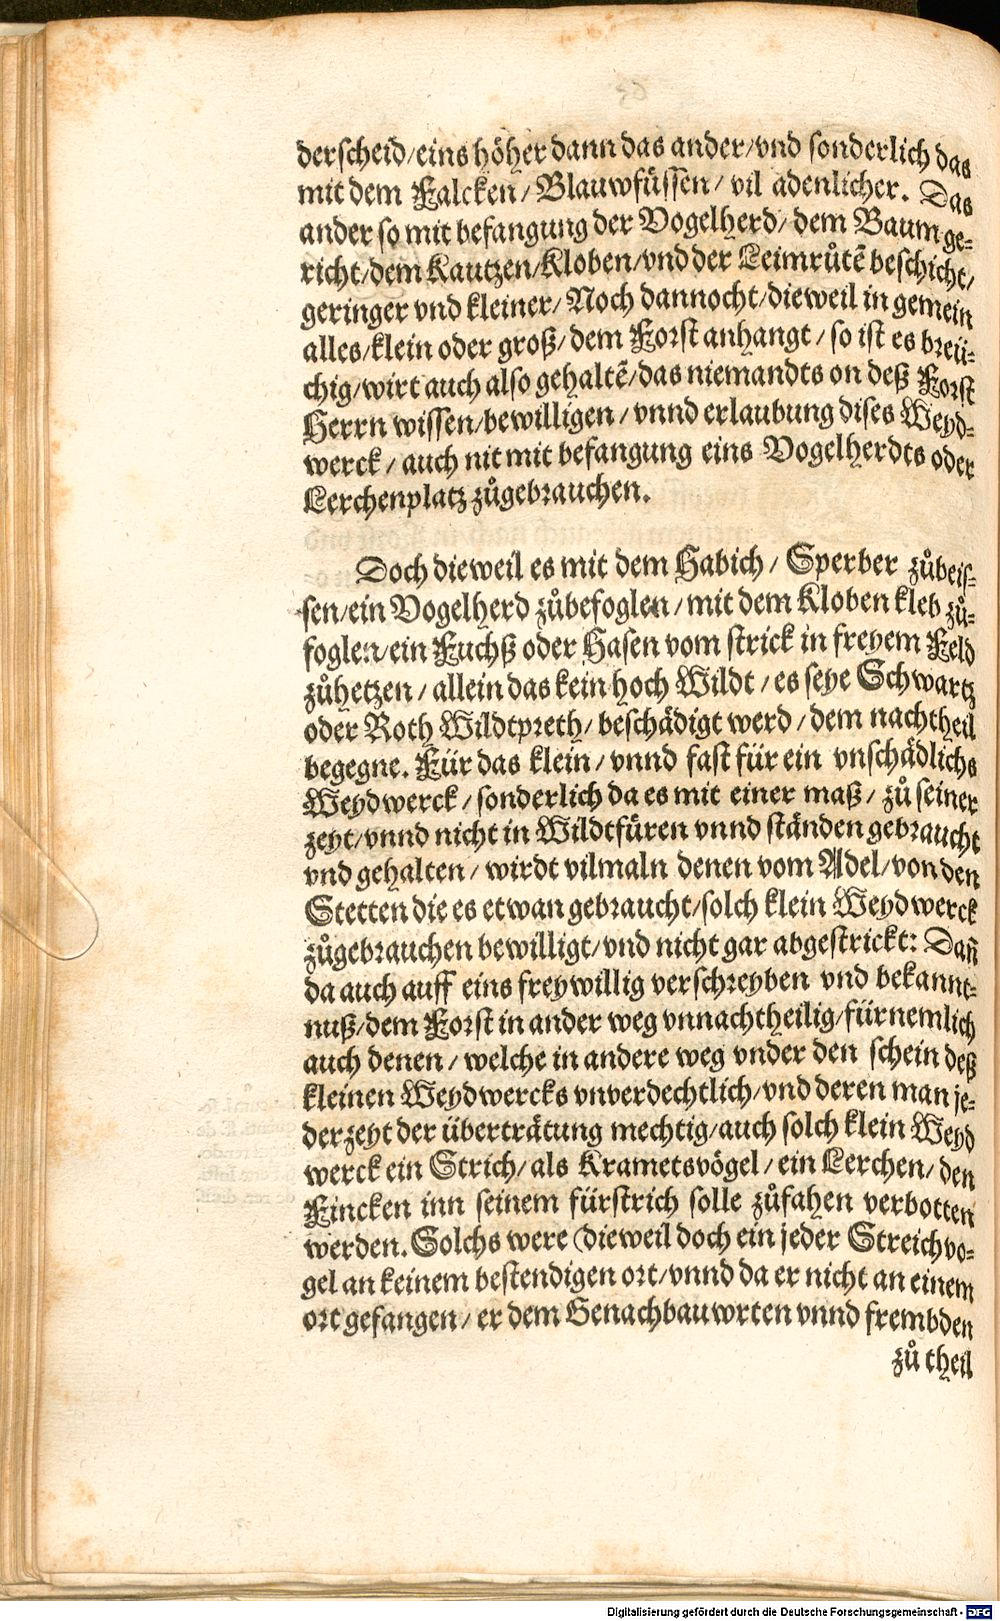 derscheid/eins höher dann das ander/vnd sonderlich das
mit dem Falcken/Blauwfüssen/vil adenlicher. Das
ander so mit befangung der Vogelherd/dem Baumge-
richt/dem Kautzen/Kloben/vnd der Leimrůtẽ beschicht/
geringer vnd kleiner/Noch dannocht/dieweil in gemein
alles/klein oder groß/dem Forst anhangt/so ist es breü-
chig/wirt auch also gehaltẽ/das niemandts on deß Forst
Herrn wissen/bewilligen/vnnd erlaubung dises Weyd-
werck/auch nit mit befangung eins Vogelherdts oder
Lerchenplatz zůgebrauchen.
Doch dieweil es mit dem Habich/Sperber zůbeis-
sen/ein Vogelherd zůbefoglen/mit dem Kloben kleb zů-
foglen/ein Fuchß oder Hasen vom strick in freyem Feld
zůhetzen/allein das kein hoch Wildt/es seye Schwartz
oder Roth Wildtpreth/beschädigt werd/dem nachtheil
begegne. Für das klein/vnnd fast für ein vnschädlichs
Weydwerck/sonderlich da es mit einer maß/zů seiner
zeyt/vnnd nicht in Wildtfüren vnnd ständen gebraucht
vnd gehalten/wirdt vilmaln denen vom Adel/von den
Stetten die es etwan gebraucht/solch klein Weydwerck
zůgebrauchen bewilligt/vnd nicht gar abgestrickt: Dañ
da auch auff eins freywillig verschreyben vnd bekannt-
nuß/dem Forst in ander weg vnnachtheilig/fürnemlich
auch denen/welche in andere weg vnder den schein deß
kleinen Weydwercks vnverdechtlich/vnd deren man je-
derzeyt der überträtung mechtig/auch solch klein Weyd
werck ein Strich/als Krametsvögel/ein Lerchen/den
Fincken inn seinem fürstrich solle zůfahen verbotten
werden. Solchs were (dieweil doch ein jeder Streichvo-
gel an keinem bestendigen ort/vnnd da er nicht an einem
ort gefangen/er dem Benachbauwrten vnnd frembden
zů theil
Digitalisierung gefördert durch die Deutsche Forschungsgemeinschaft - DFG